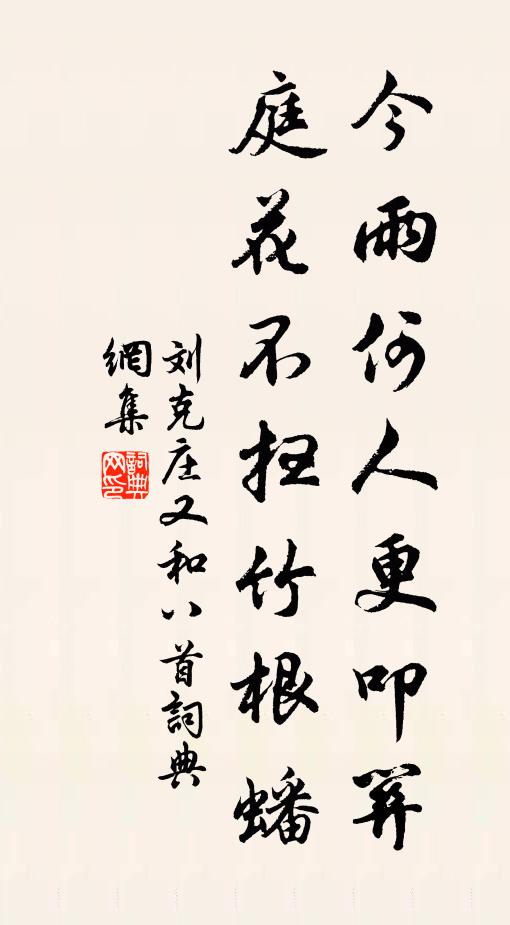 今雨何人更叩關
庭花不扫竹根蟠
刘克庄又和八首詞典
網集
詞典
网印